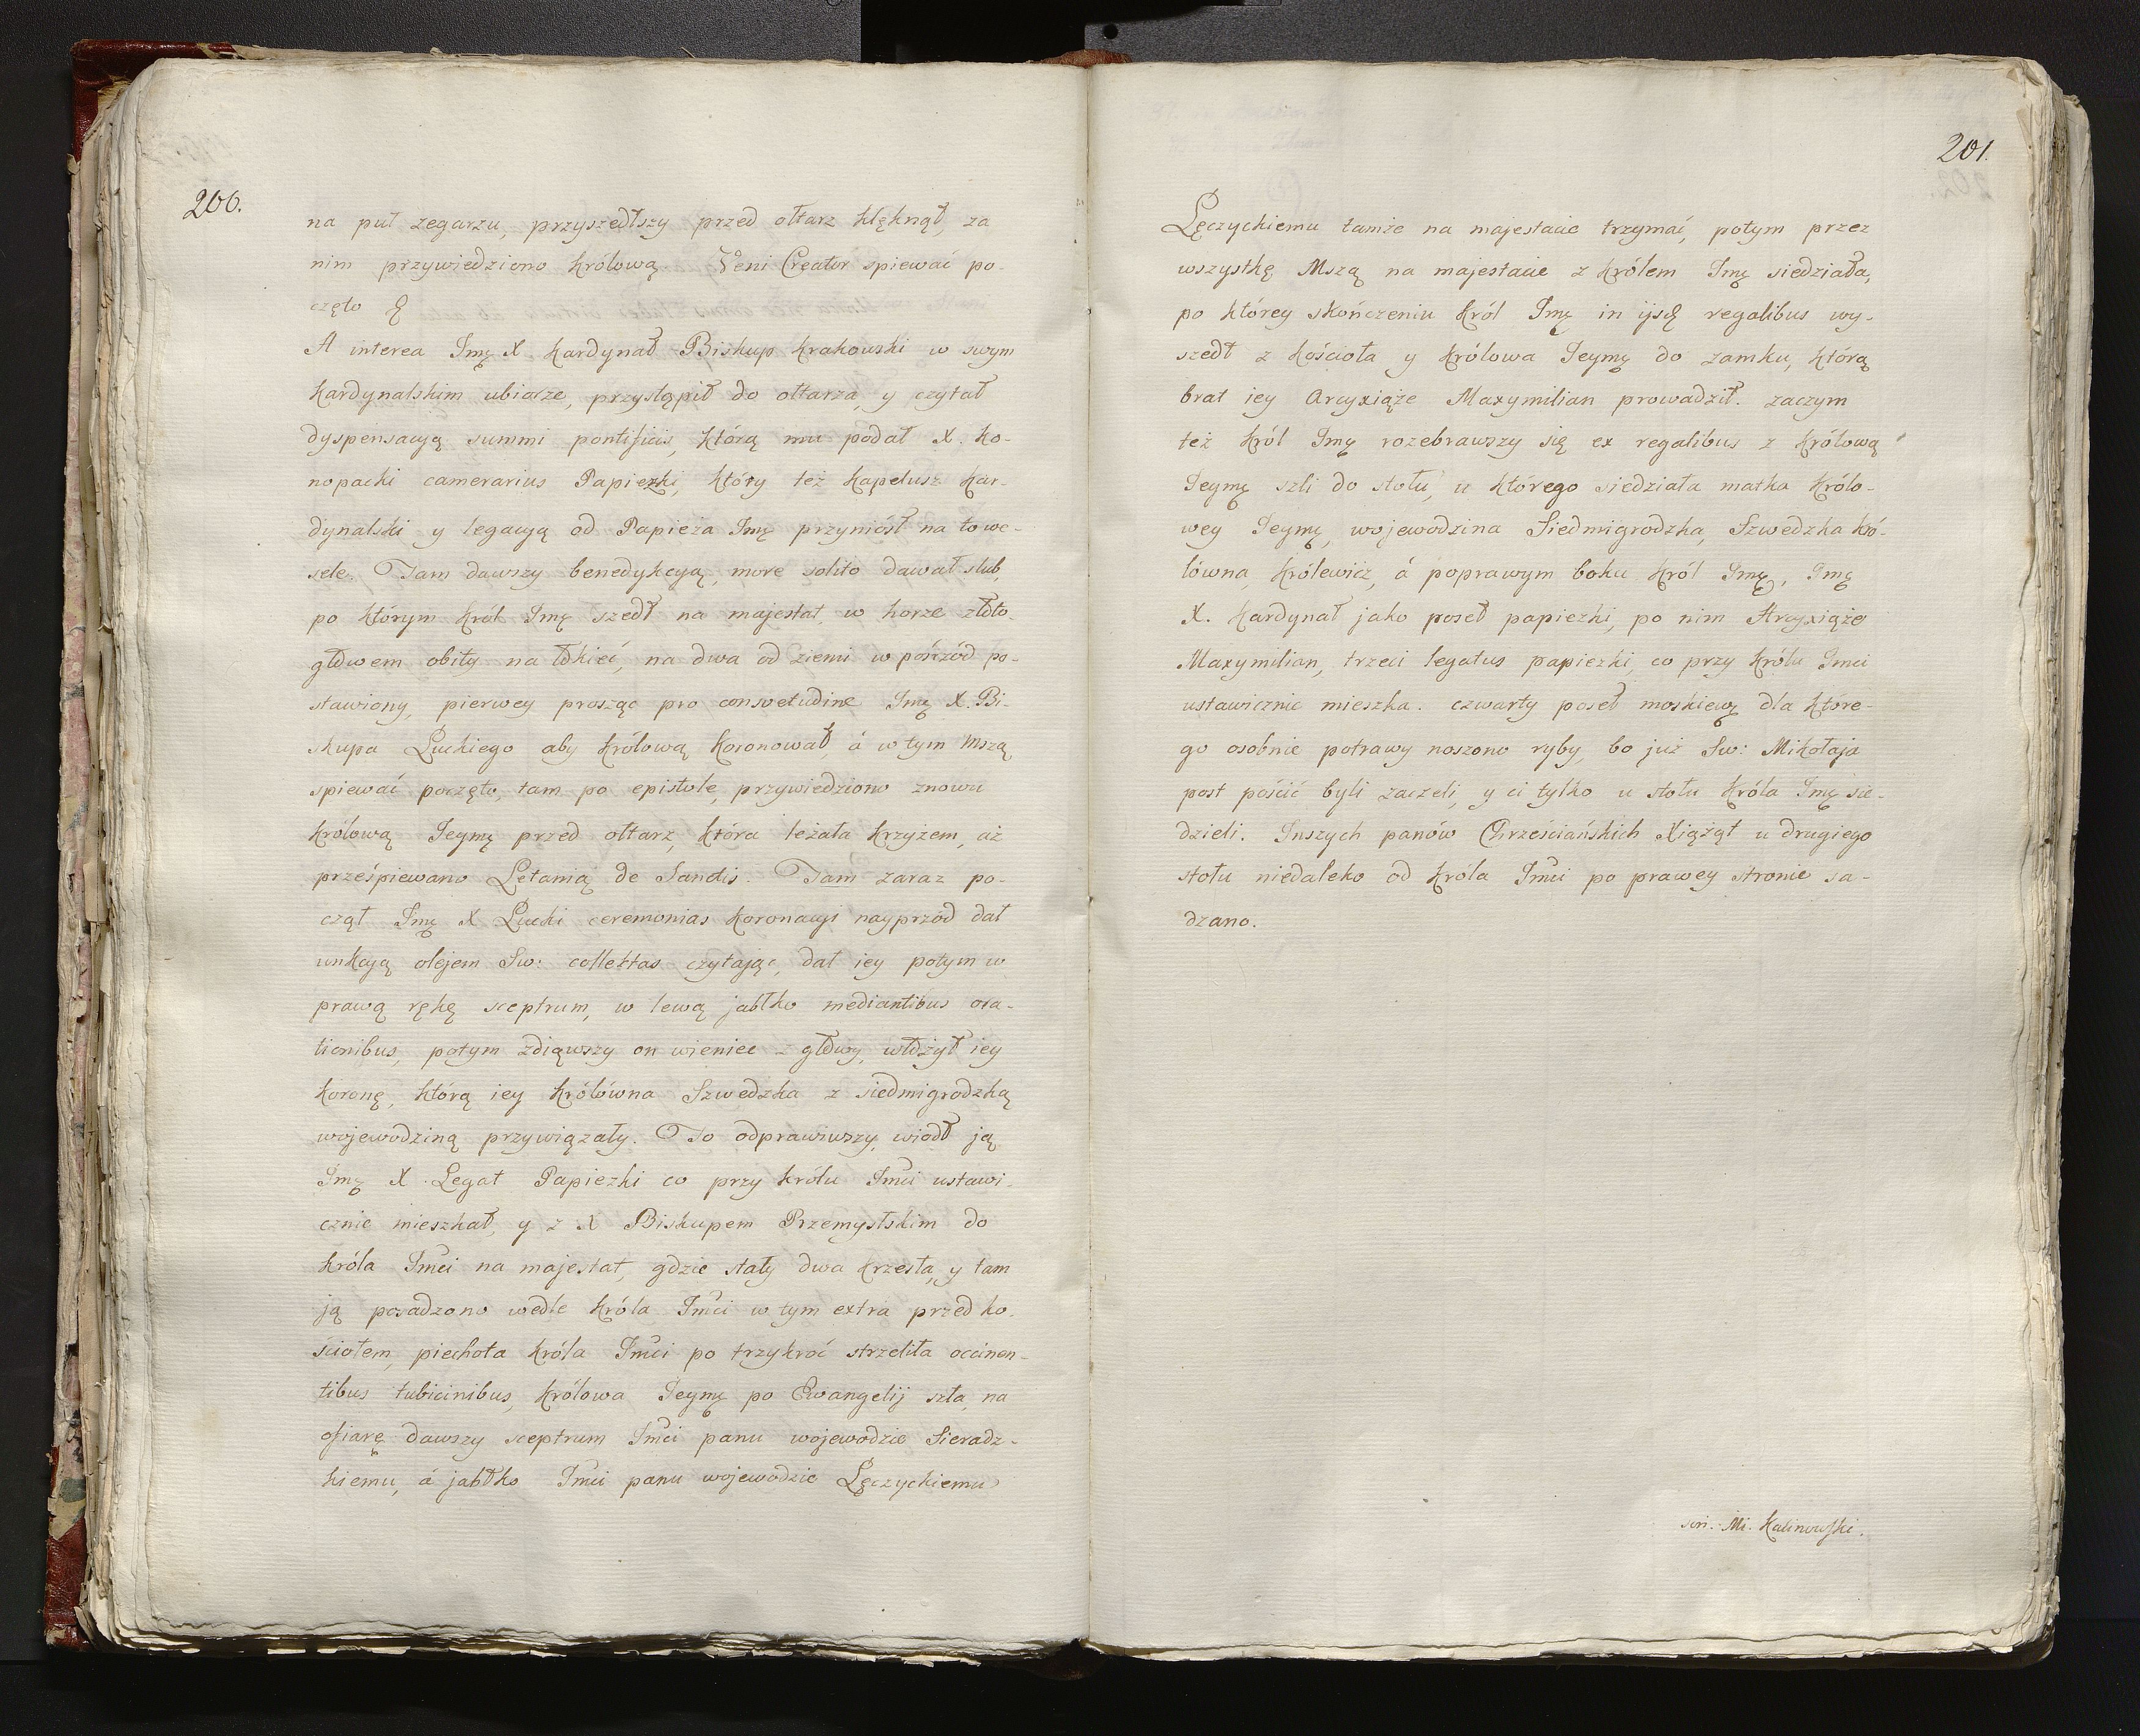 200.
na puł zegarzu, przyszedłszy przed ołtarz klęknął, za
nim przywiedziono królową Veni Creator spiewać po-
częto
A interea Jmę X. Kardynał Biskup Krakowski w swym
kardynalskim ubiorze, przystąpił do ołtarza y czytał
dyspensacyą summi pontificis, którą mu podał X. Ko-
nopacki camerarius Papiezki, który też kapelusz kar-
dynalski y legacyą od Papieża Jmę przyniósł na to we-
sele. Tam dawszy benedykcyą, more solito dawał slub,
po którym Król Jmę szedł na majestat, w horze złoto-
głowem obity na łokieć, na dwa od ziemi w pośrzód po-
stawiony, pierwey prosząc pro consvetudine Jmę X. Bi-
skupa Luckiego aby Królową koronował, á w tym Mszą
spiewać poczęto, tam po epistole, przywiedziono znowu
Królową Jeymę przed ołtarz, która leżała krzyżem, aż
prześpiewano Letanią de Sanctis. Tam zaraz po-
czął Jmę X Lucki ceremonias koronacyi nayprzód dał
unkcyą olejem Sw: collektas czytając, dał iey potym w
prawą rękę sceptrum, w lewą jabłko mediantibus ora-
tionibus, potym zdiąwszy on wieniec z głowy, włożył iey
koronę, którą iey Królówna Szwedzka z siedmigrodzką
wojewodziną przywiązały. To odprawiwszy, wiodł ją
Jmę X. Legat Papiezki co przy królu Jmci ustawi-
cznie mieszkał, y z X Biskupem Przemyslskim do
króla Jmci na majestat, gdzie stały dwa krzesła, y tam
ją posadzono wedle Króla Jmci w tym extra przed ko-
ściołem, piechota Króla Jmci po trzykroć strzeliła occinen-
tibus tubicinibus, Królowa Jeymę po Ewangelij szła, na
ofiarę dawszy sceptrum Jmci panu wojewodzie Sieradz-
kiemu, á jabłko Jmci panu wojewodzie Lęczyckiemu
201.
Lęczyckiemu tamże na majestacie trzymać, potym przez
wszystkę Mszą na majestacie z Królem Jmę siedziała,
po którey skończeniu Król Jmę in ijsd regalibus wy-
szedł z kościoła y Królowa Jeymę do zamku, którą
brat iey Arcyxiąże Maxymilian prowadził. zaczym
też Król Jmę rozebrawszy się ex regalibus z Królową
Jeymę szli do stołu, u którego siedziała matka Królo-
wey Jeymę, wojewodzina Siedmigrodzka, Szwedzka Kró-
lówna, Królewicz, á poprawym boku Król Jmę, Jmę
X. Kardynał jako poseł papiezki, po nim Arcyxiąże
Maxymilian, trzeci legatus papiezki, co przy Królu Jmci
ustawicznie mieszka. czwarty poseł moskiewę dla które-
go osobnie potrawy noszono ryby, bo już Sw: Mikołaja
post pościć byli zaczeli, y ci tylko u stołu Króla Jmę sie-
dzieli. Inszych panów Chrześciańskich Xiążąt u drugiego
stołu niedaleko od Króla Jmci po prawey stronie sa-
dzano.
scri. Mi. Kalinowski.